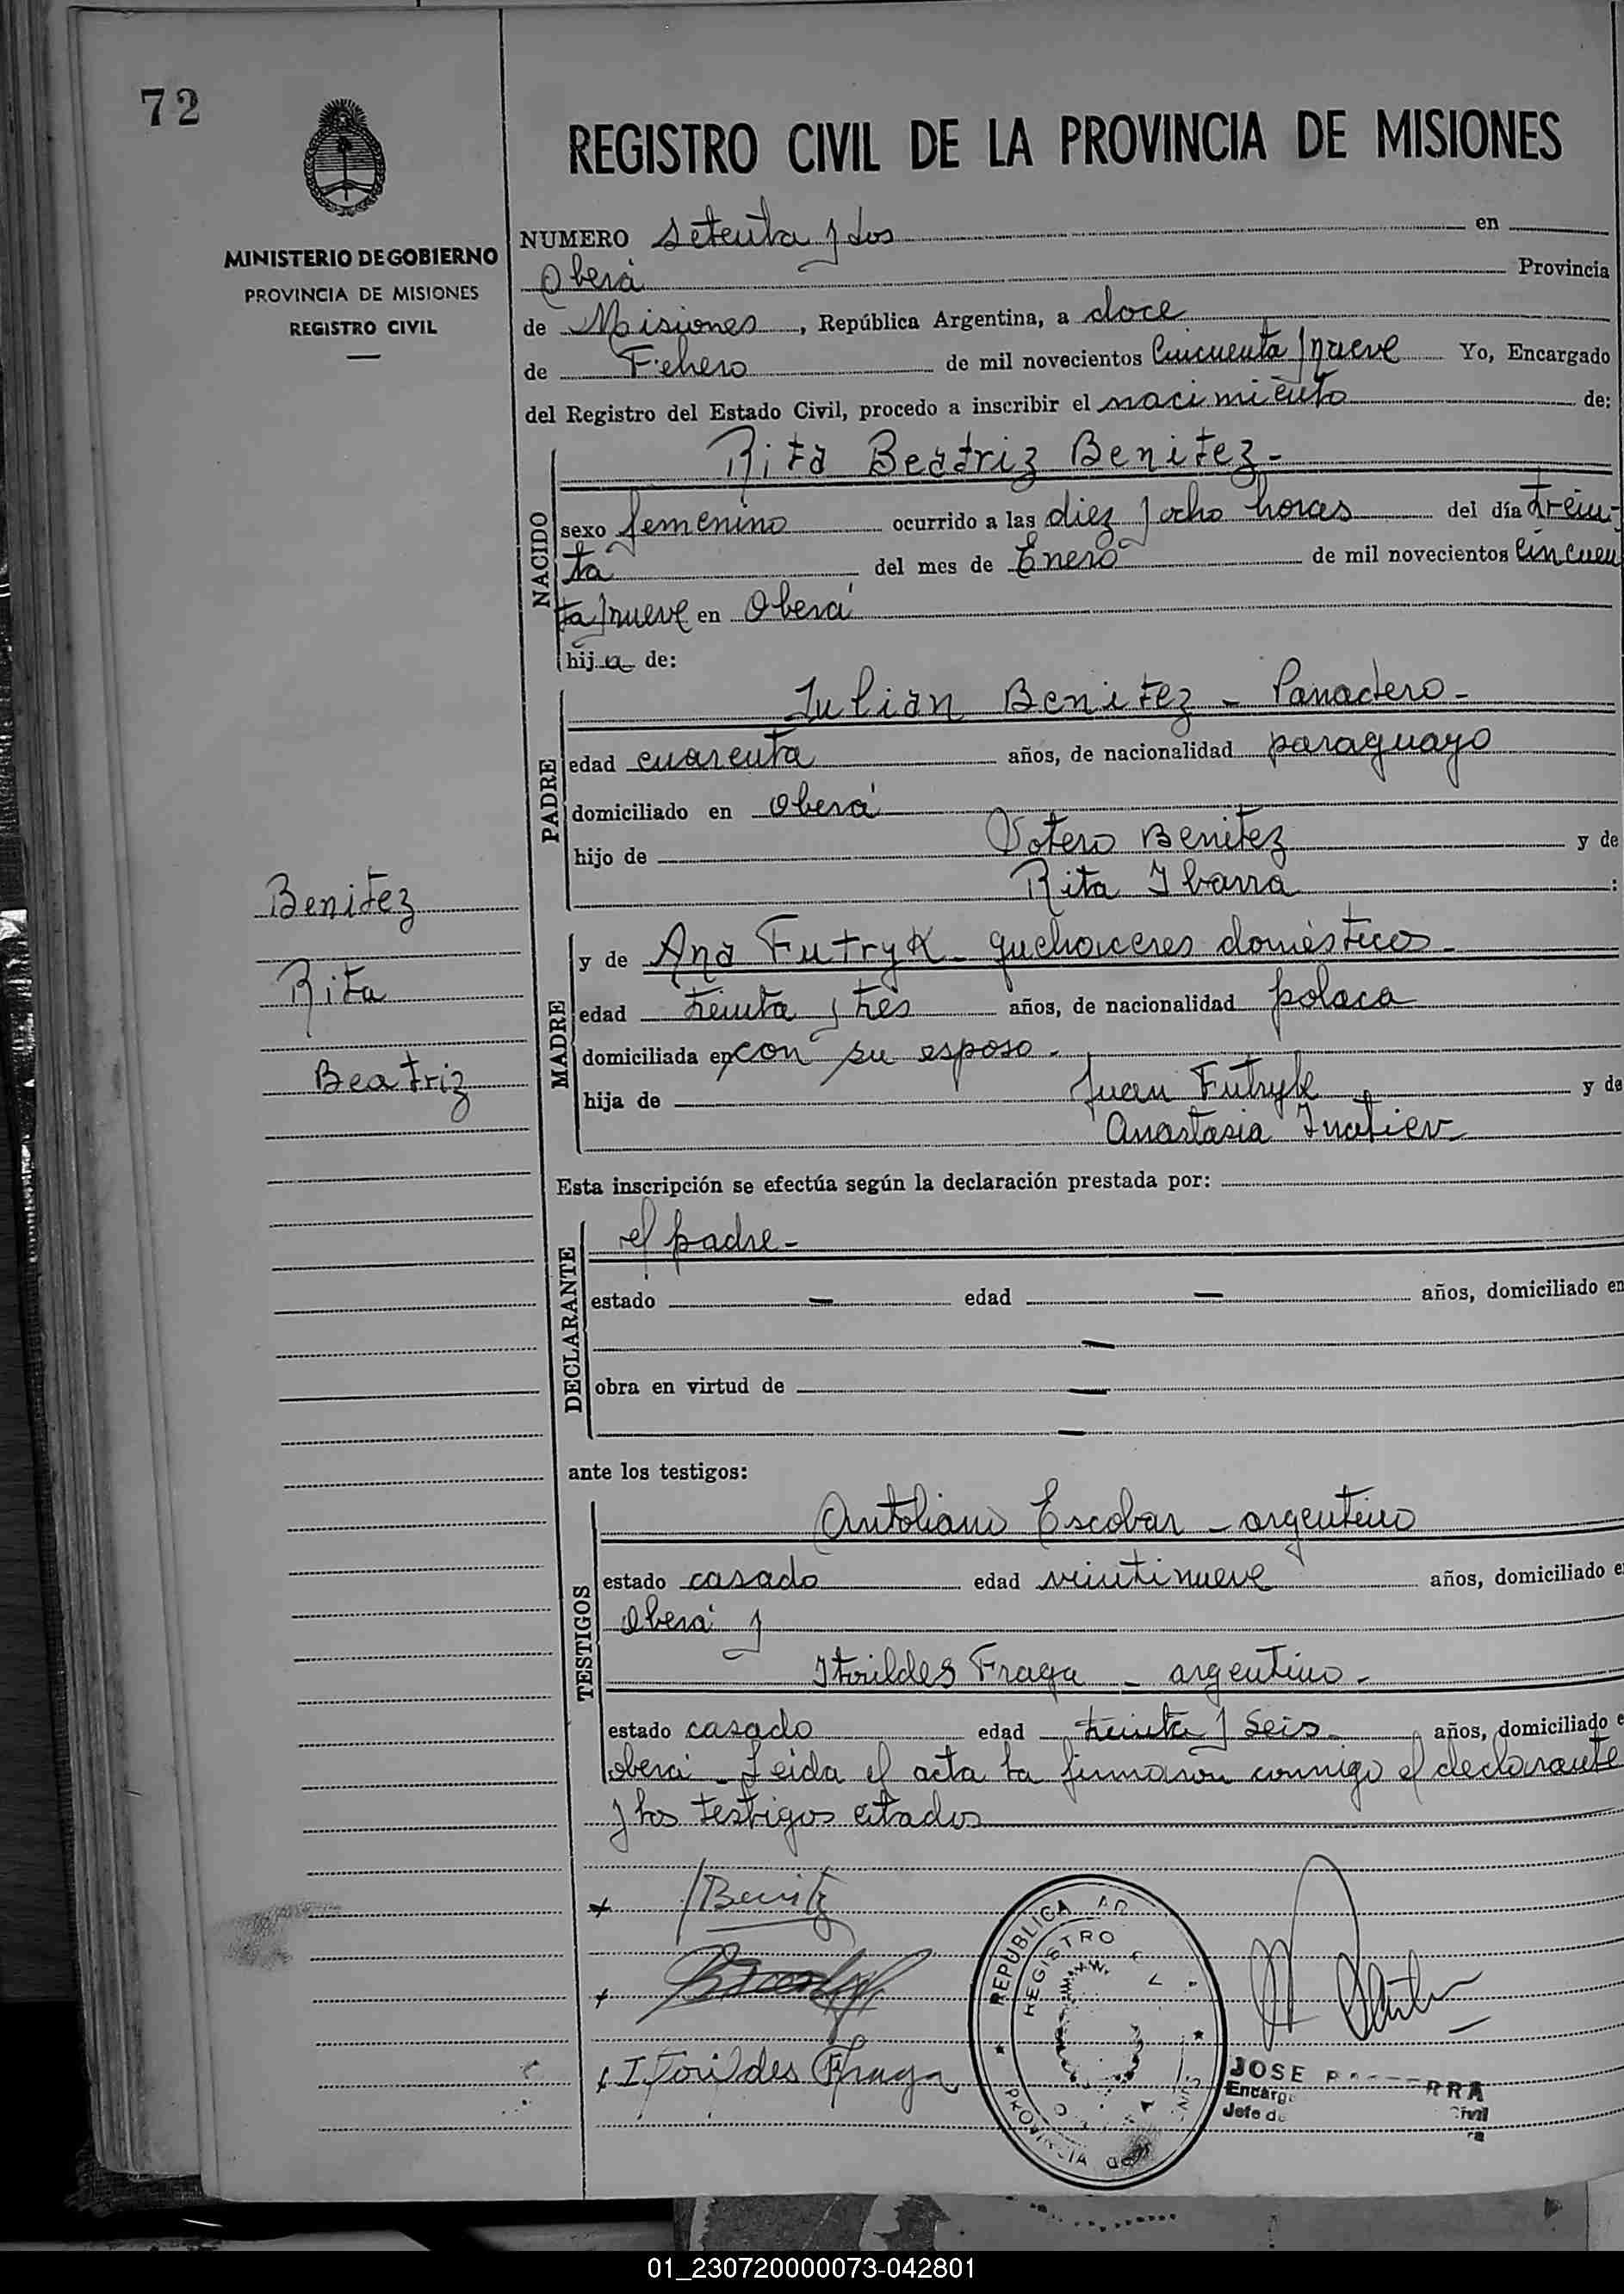 72
REGISTRO CIVIL DE LA PROVINCIA DE MISIONES
MINISTERIO DE GOBIERNO
PROVINCIA DE MISIONES
REGISTRO CIVIL
NUMERO setenta y dos en
Oberá Provincia
de Misiones, República Argentina, a doce
de Febrero de mil novecientos Cincuenta y nueve Yo, Encargado
del Registro del Estado Civil, procedo a inscribir el nacimiento de:
NACIDO
Rita Beatriz Benitez-
sexo femenino ocurrido a las diez y ocho horas del día trein-
ta del mes de Enero de mil novecientos Cincuen
ta y nueve en Oberá
hija de:
PADRE
Julian Benitez - Panadero-
edad cuarenta años, de nacionalidad paraguayo
domiciliado en Oberá
hijo de Sotero Benitez y de
Rita Ibarra :
Benitez
Rita
Beatriz
MADRE
y de Ana Futryk - quehaceres domésticos-
edad treinta y tres años, de nacionalidad polaca
domiciliada en con su esposo-
hija de Juan Futryk y de
Anastasia
Esta inscripción se efectúa según la declaración prestada por:
DECLARANTE
el padre-
estado — edad — años, domiciliado en
—
obra en virtud de —
—
ante los testigos:
TESTIGOS
Antoliano Escobar - argentino
estado casado edad veintinueve años, domiciliado e
Oberá y
Itorildes Fraga - argentino-
estado casado edad treinta y seis años, domiciliado e
Oberá - Leida el acta la firmaron conmigo el declarante
y los testigos citados
Benitz
Itorildes Fraga
REPUBLICA AR
REGISTRO
PROVINCIA
JOSE RRA
Encarg
Jefe de Civil
01_230720000073-042801